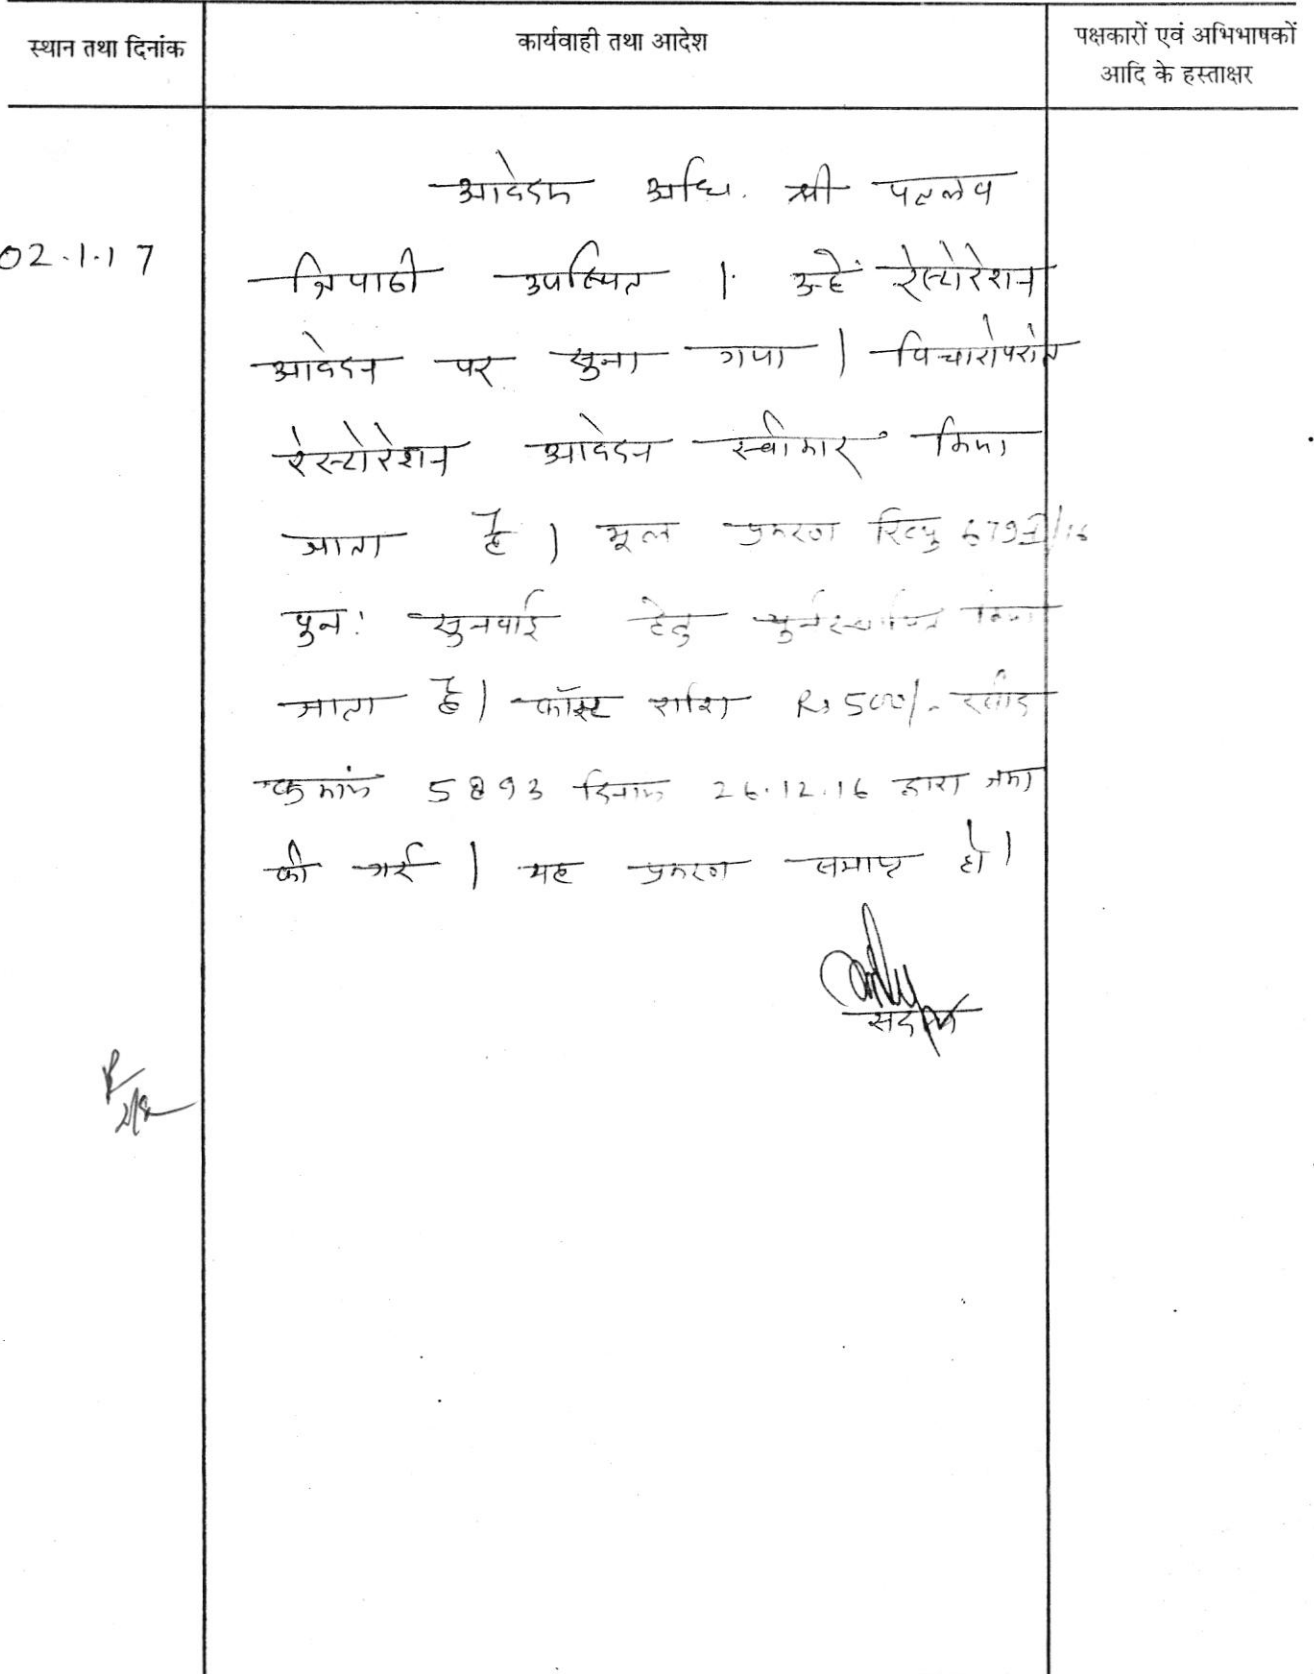 स्थान तथा दिनांक
कार्यवाही तथा आदेश
पक्षकारों एवं अभिभाषकों
आदि के हस्ताक्षर
आवेदक अधि. श्री पल्लव
02.1.17
त्रिपाठी उपस्थित । उन्हें रेस्टोरेशन
आवेदन पर सुना गया । विचारोपरांत
रेस्टोरेशन आवेदन स्वीकार किया
जाता है । मूल प्रकरण रिव्यु
पुन: सुनवाई हेतु पुर्नस्थापित किया
जाता है । कॉस्ट राशि Rs 500/- रसीद
क्रमांक 5893 दिनांक 26.12.16 द्वारा जमा
की गई । यह प्रकरण समाप्त हो ।
सदस्य